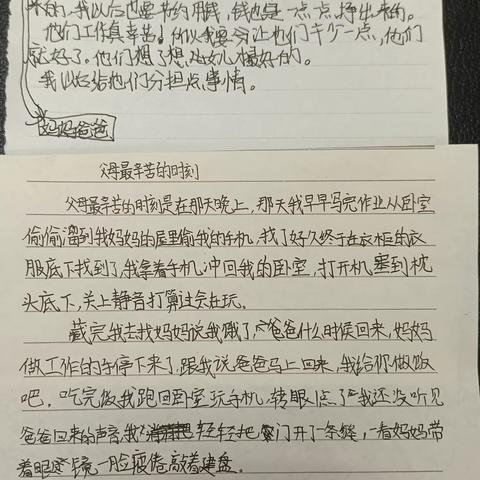 来的,我以后也要节约用钱,钱也是一点一点挣出来的。
他们工作真辛苦!所以我要
让他们辛
一点,他们
就好了。他们想了想
挺好的。
我以后给他们分担点事情。
妈妈爸爸
父母最辛苦的时刻
父母最辛苦的时刻是在那天晚上,那天我早早写完作业从卧室
偷偷溜到我妈妈的屋里偷我的手机,找了好久终于在衣柜的衣
服底下找到了,我拿着手机冲回我的卧室,打开机塞到枕
头底下,关上静音打算过会在玩。
藏完我去找妈妈说我饿了,爸爸什么时候回来,妈妈
做工作的手停下来了,跟我说爸爸马上回来,我给你做饭
吧,吃完饭我跑回卧室玩手机,转眼
点了我还没听见
爸爸回来的声音,我
轻轻把
门开了一条缝,一看妈妈带
着眼
镜一脸疲倦敲着键盘。